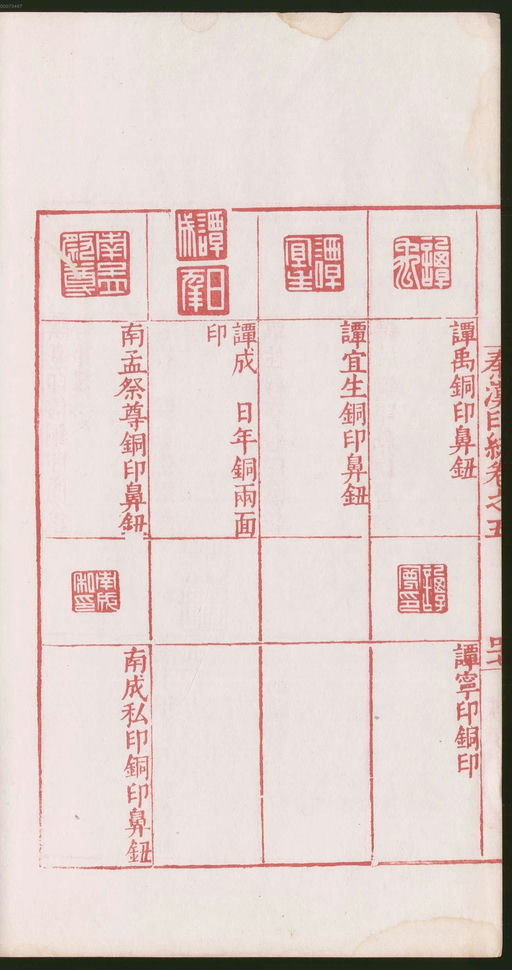 00073447
秦漢印統卷之五
四七
譚禹銅印鼻鈕
譚寧印銅印
譚宜生銅印鼻鈕
譚成　日年銅兩面
印
南孟祭尊銅印鼻鈕
南成私印銅印鼻鈕